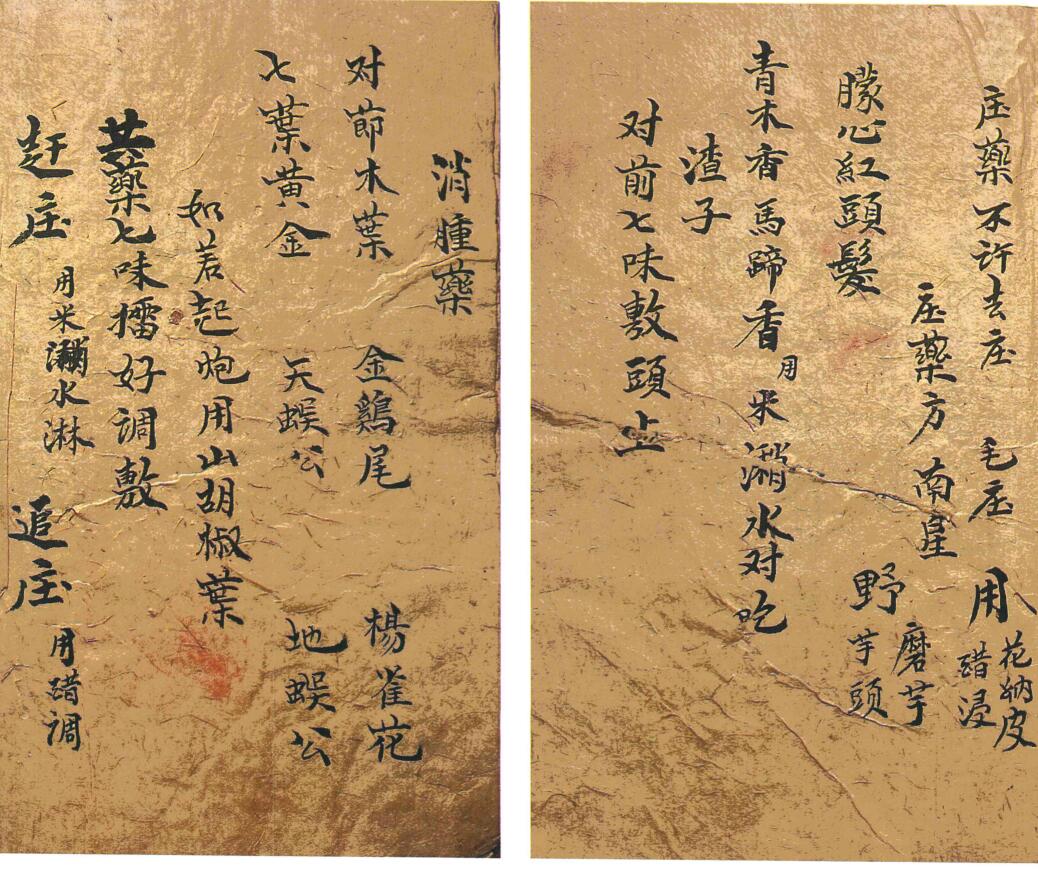 庄藥不许去庄 毛庄 用 花蚋皮 醋浸
庄藥方 南星 磨芋
朦心紅頭髮 野芋頭
青木香馬蹄香用米潲水对吃
渣子
对前七味敷頭上
消腫藥
对節木葉 金鷄尾 楊雀花
七葉黄金 天蜈公 地蜈公
如若起炮用山胡椒葉
共藥七味擂好调敷
赶庄 用米潲水淋 追庄 用醋调